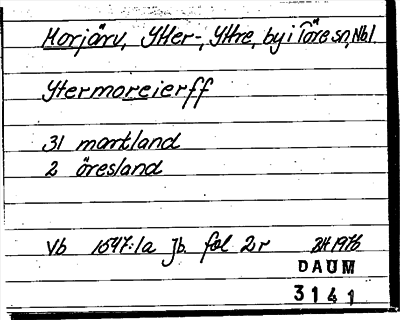 Morjärv, Ytter-, Yttre, by i Töre sn, Nbl.
Ytermoreierff
31 martland
2 öresland
Vb 1547:1a Jb. fol 2r BH 1976
DAUM
3141